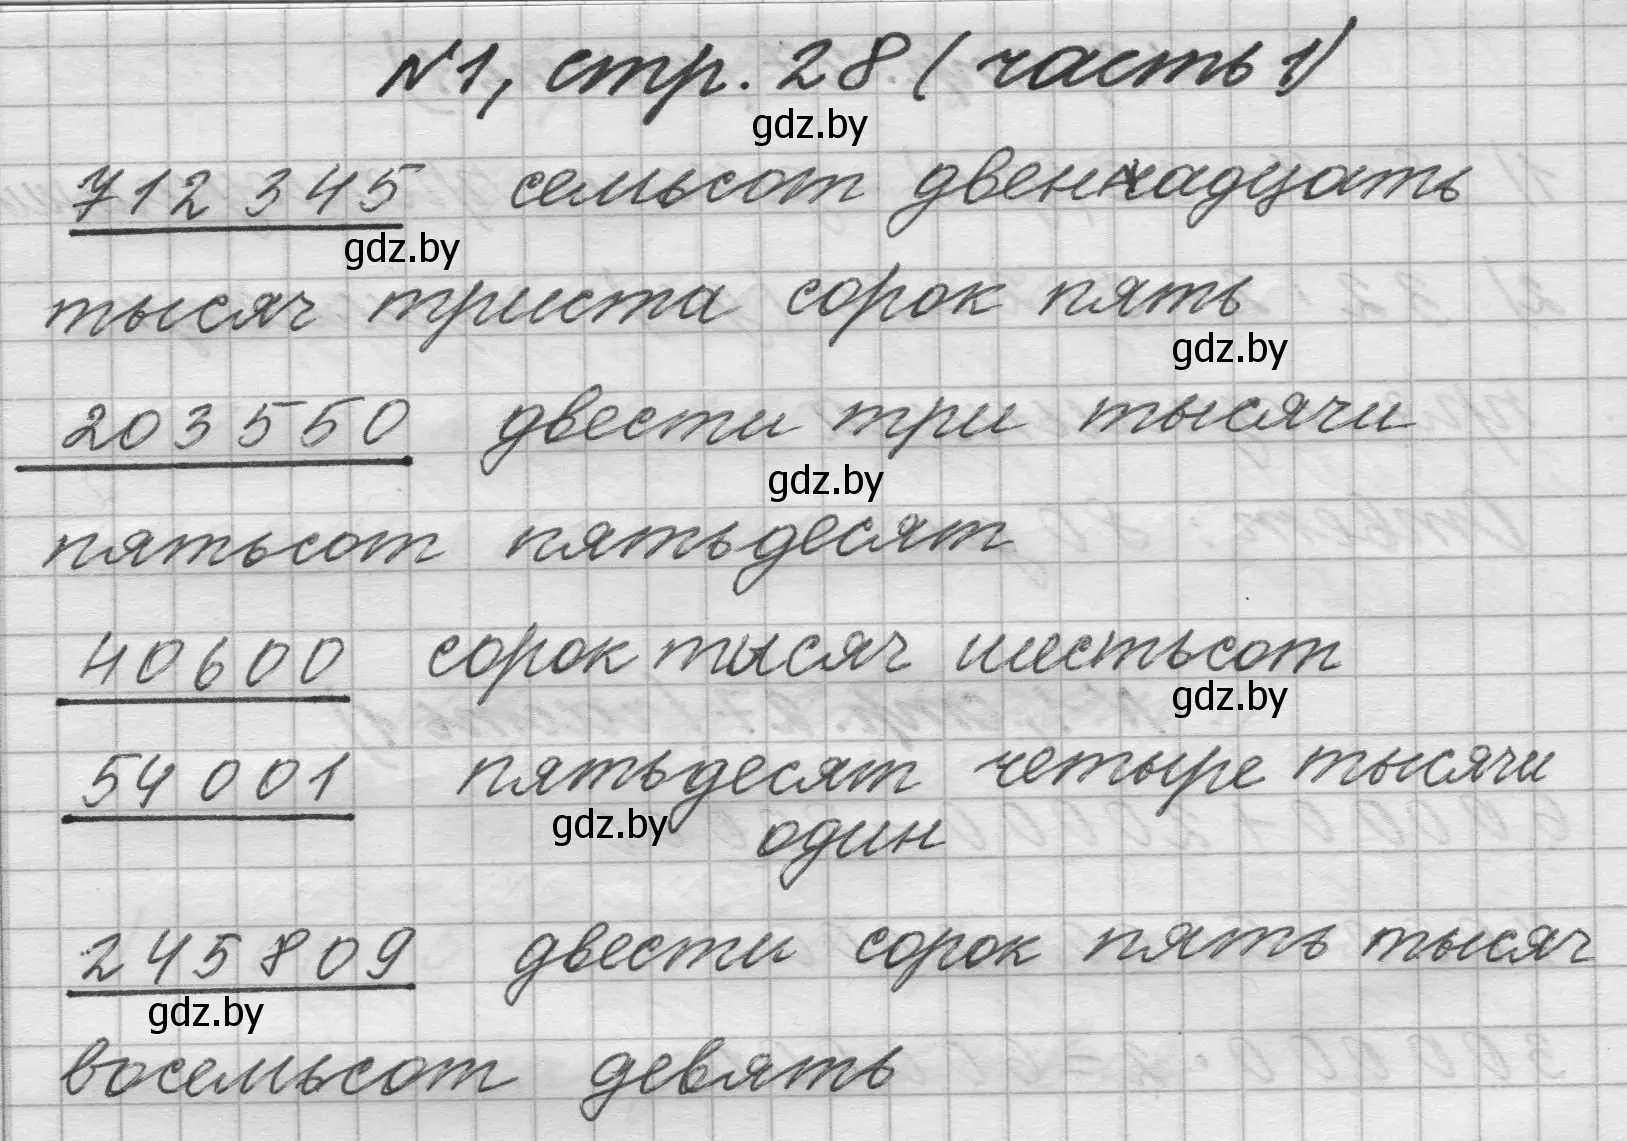 №1, стр. 28 (часть 1)
gdz.by
712 345 семьсот двенадцать
gdz.by
тысяч триста сорок пять
gdz.by
203 550 двести три тысячи
gdz.by
пятьсот пятьдесят
40600 сорок тысяч шестьсот
gdz.by
54 001 пятьдесят четыре тысячи
gdz.by один
245 809 двести сорок пять тысяч
gdz.by
восемьсот девять